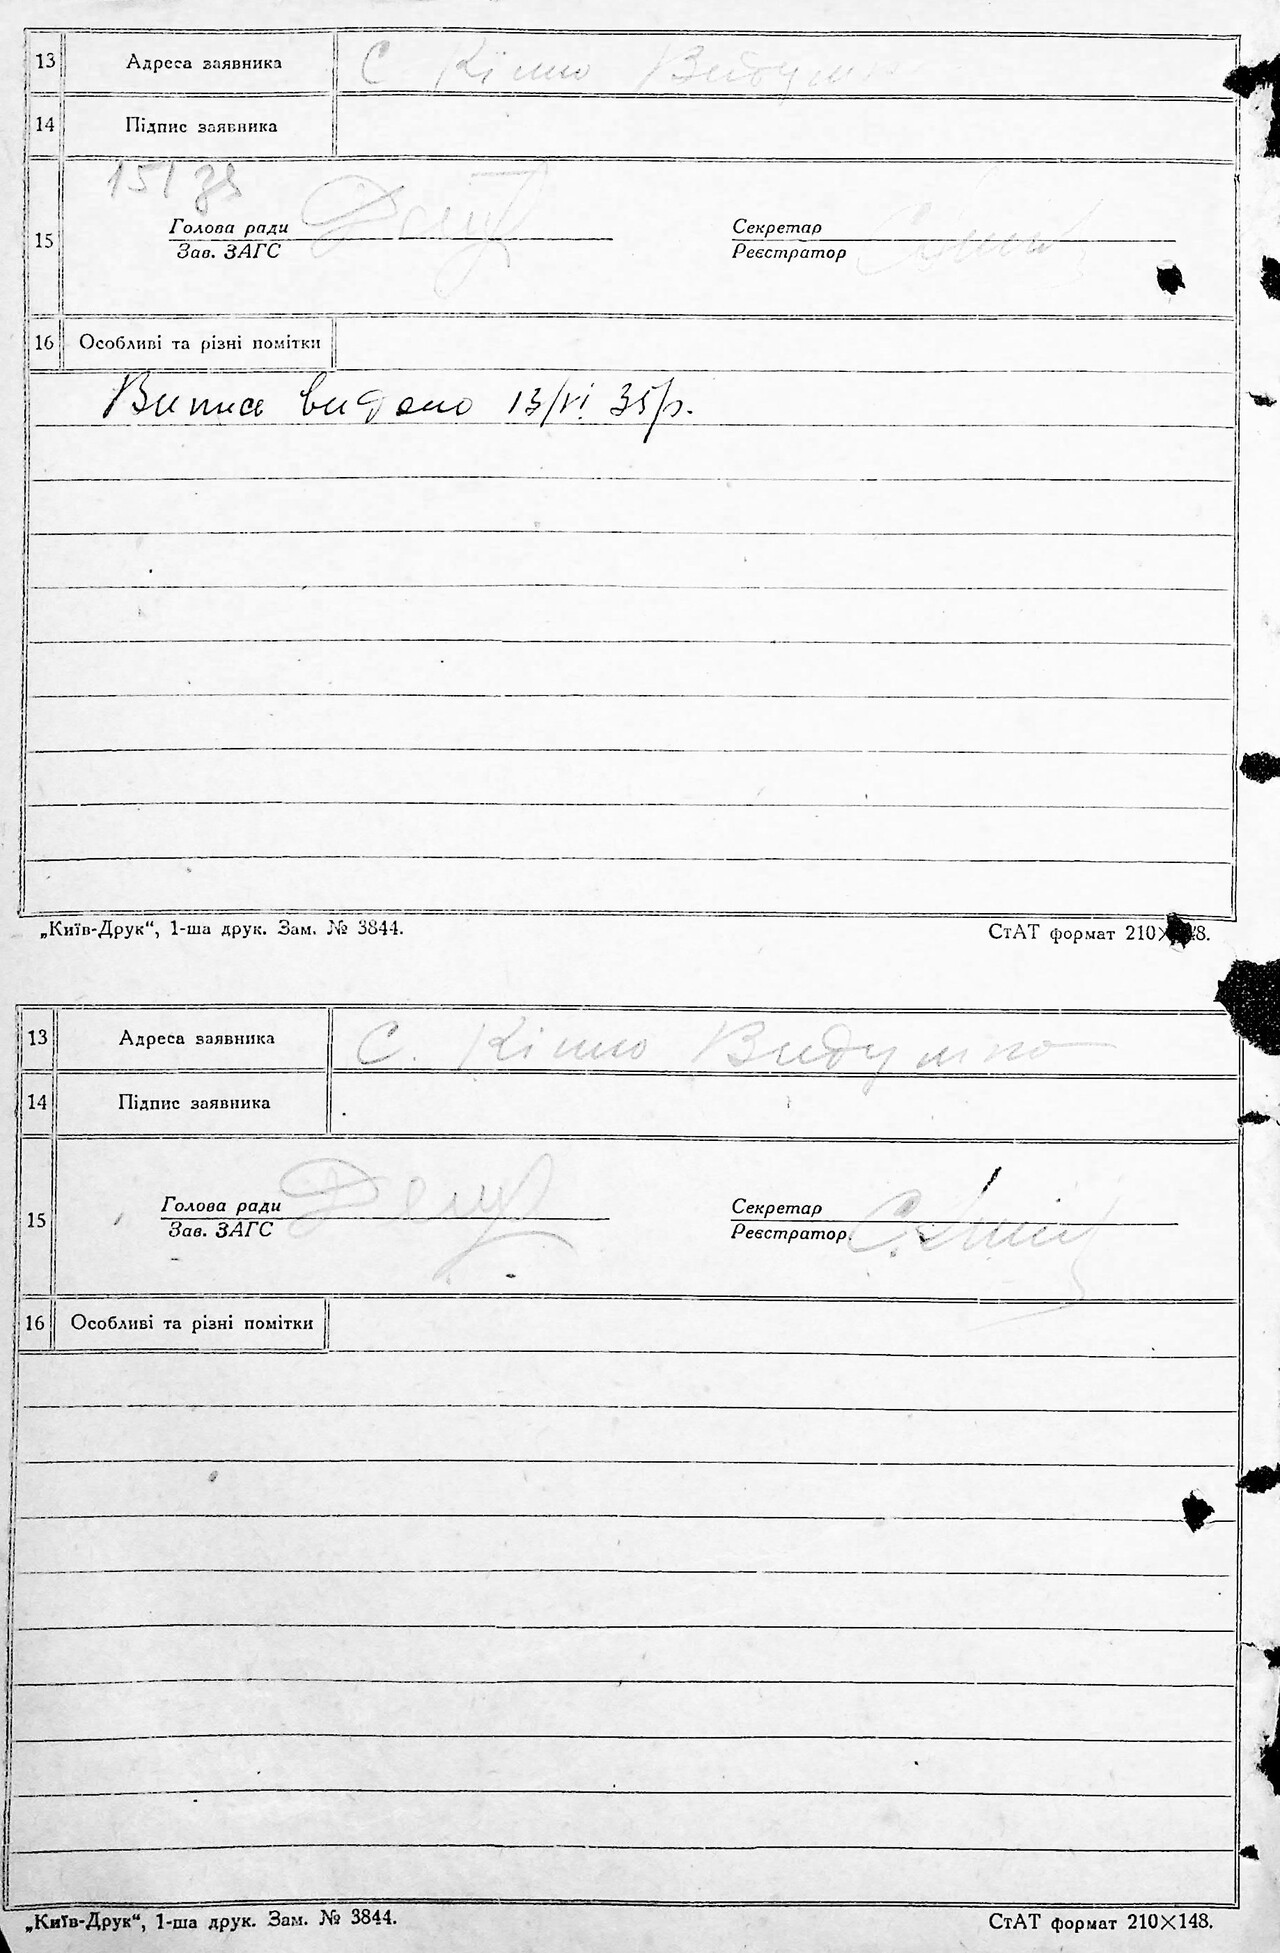 13 Адреса заявника С Кіпто
14 Підпис заявника
15
Голова ради Секретар
Зав. ЗАГС Реєстратор
16 Особливі та різні помітки
Випис видано 13/VI 35/р.
„Київ-Друк“, 1-ша друк. Зам. № 3844. СтАТ формат 210×148.
13 Адреса заявника С.
14 Підпис заявника
Голова ради Секретар
15
Зав. ЗАГС Реєстратор
16 Особливі та різні помітки
„Київ-Друк“, 1-ша друк. Зам. № 3844. СтАТ формат 210×148.